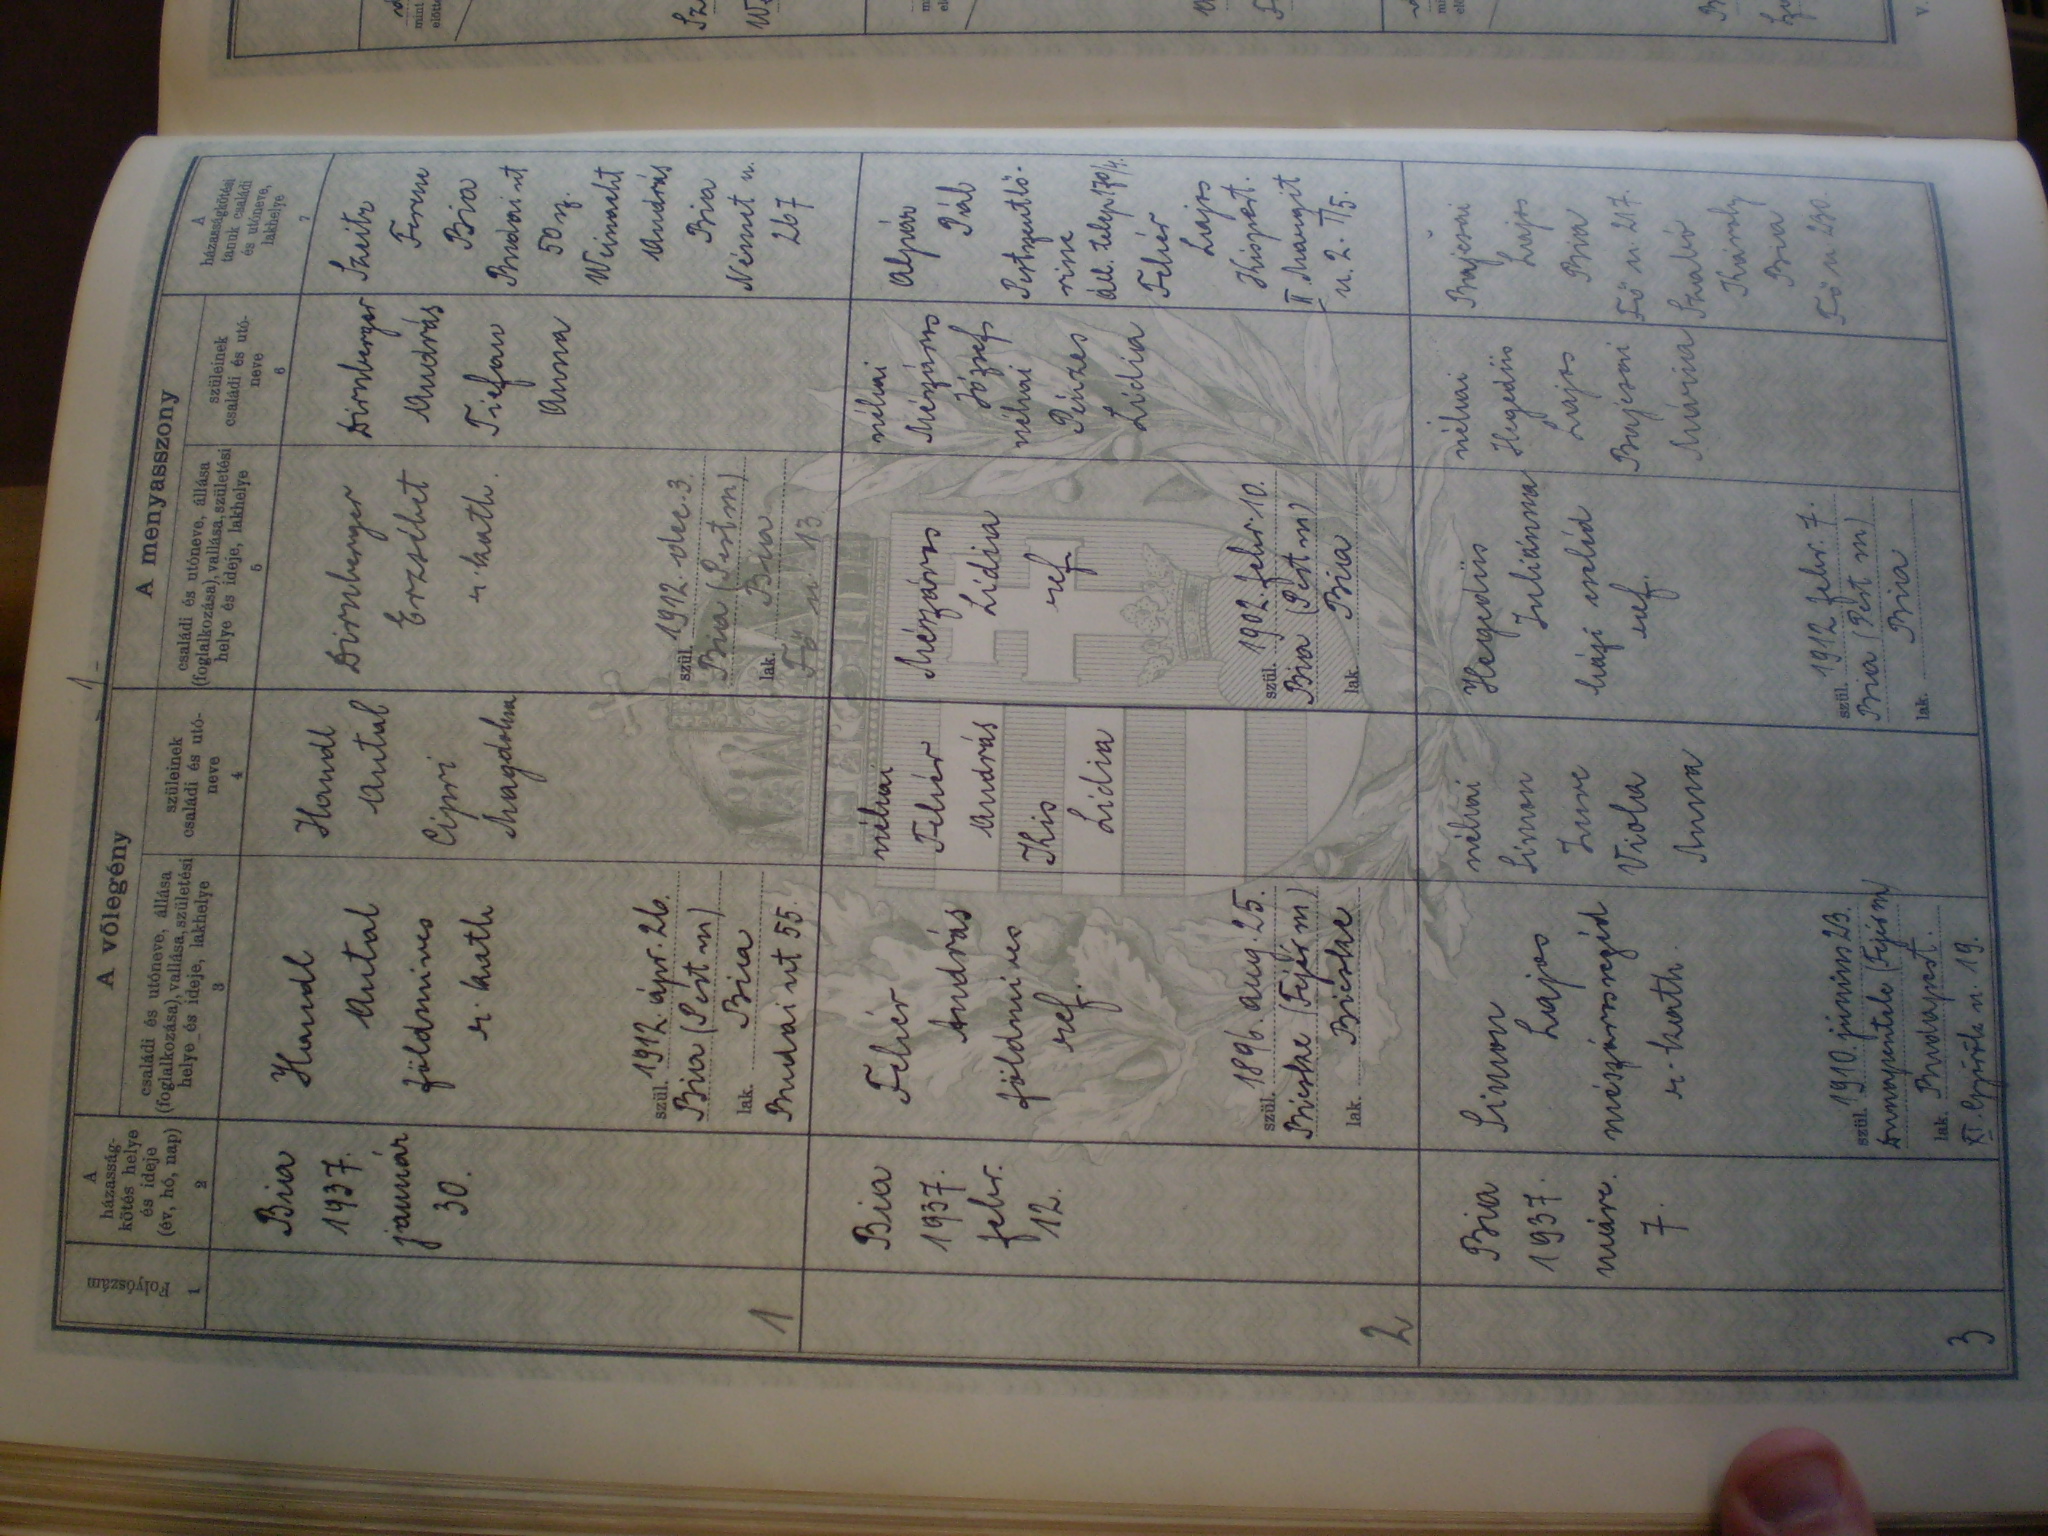 1
A vőlegény
A menyasszony
Folyószám
1
A
házasság-
kötés helye
és ideje
(év, hó, nap)
2
családi és utóneve, állása
(foglalkozása), vallása, születési
helye és ideje, lakhelye
3
szüleinek
családi és utó-
neve
4
családi és utóneve, állása
(foglalkozása), vallása, születési
helye és ideje, lakhelye
5
szüleinek
családi és utó-
neve
6
A
házasságkötési
tanuk családi
és utóneve,
lakhelye
7
1
Bia
1937.
január
30.
Handl
Antal
földmives
r. kath
szül. 1912. ápr. 26.
Bia (Pest m)
lak. Bia
Budai út 55.
Handl
Antal
Cipri
Magdolna
Dirnberger
Erzsébet
r. kath.
szül. 1912. dec. 3.
Bia (Pest m)
lak. Bia
Fő u. 13
Dirnberger
András
Tiefau
Anna
Szeitz
Ferenc
Bia
Budai út
50 sz.
Weinhardt
András
Bia
Német u.
267
2
Bia
1937.
febr.
12.
Fehér
András
földmives
ref.
szül. 1896. aug. 25.
Bicske (Fejér m)
lak. Bicske
néhai
Fehér
András
Kis
Lidia
Mészáros
Lidia
ref
szül. 1902. febr. 10.
Bia (Pest m)
lak. Bia
néhai
Mészáros
József
néhai
Pénzes
Lidia
Alpár
Pál
Pestszentlő-
rinc
áll. telep 170/4.
Fehér
Lajos
Kispest.
II Margit
u. 2. II/5.
3
Bia
1937.
márc.
7.
Simon
Lajos
mészárossegéd
r. kath.
szül. 1910. június 23.
Dunapentele (Fejér m)
lak. Budapest.
XI. u. 19.
néhai
Simon
Imre
Viola
Anna
Hegedüs
Juliánna
házi cseléd
ref.
szül. 1912. febr. 7.
Bia (Pest m)
lak. Bia
néhai
Hegedüs
Lajos
Bajcsai
Mária
Bajcsai
Lajos
Bia
Fő u. 217.
Szabó
Károly
Bia
Fő u. 230.